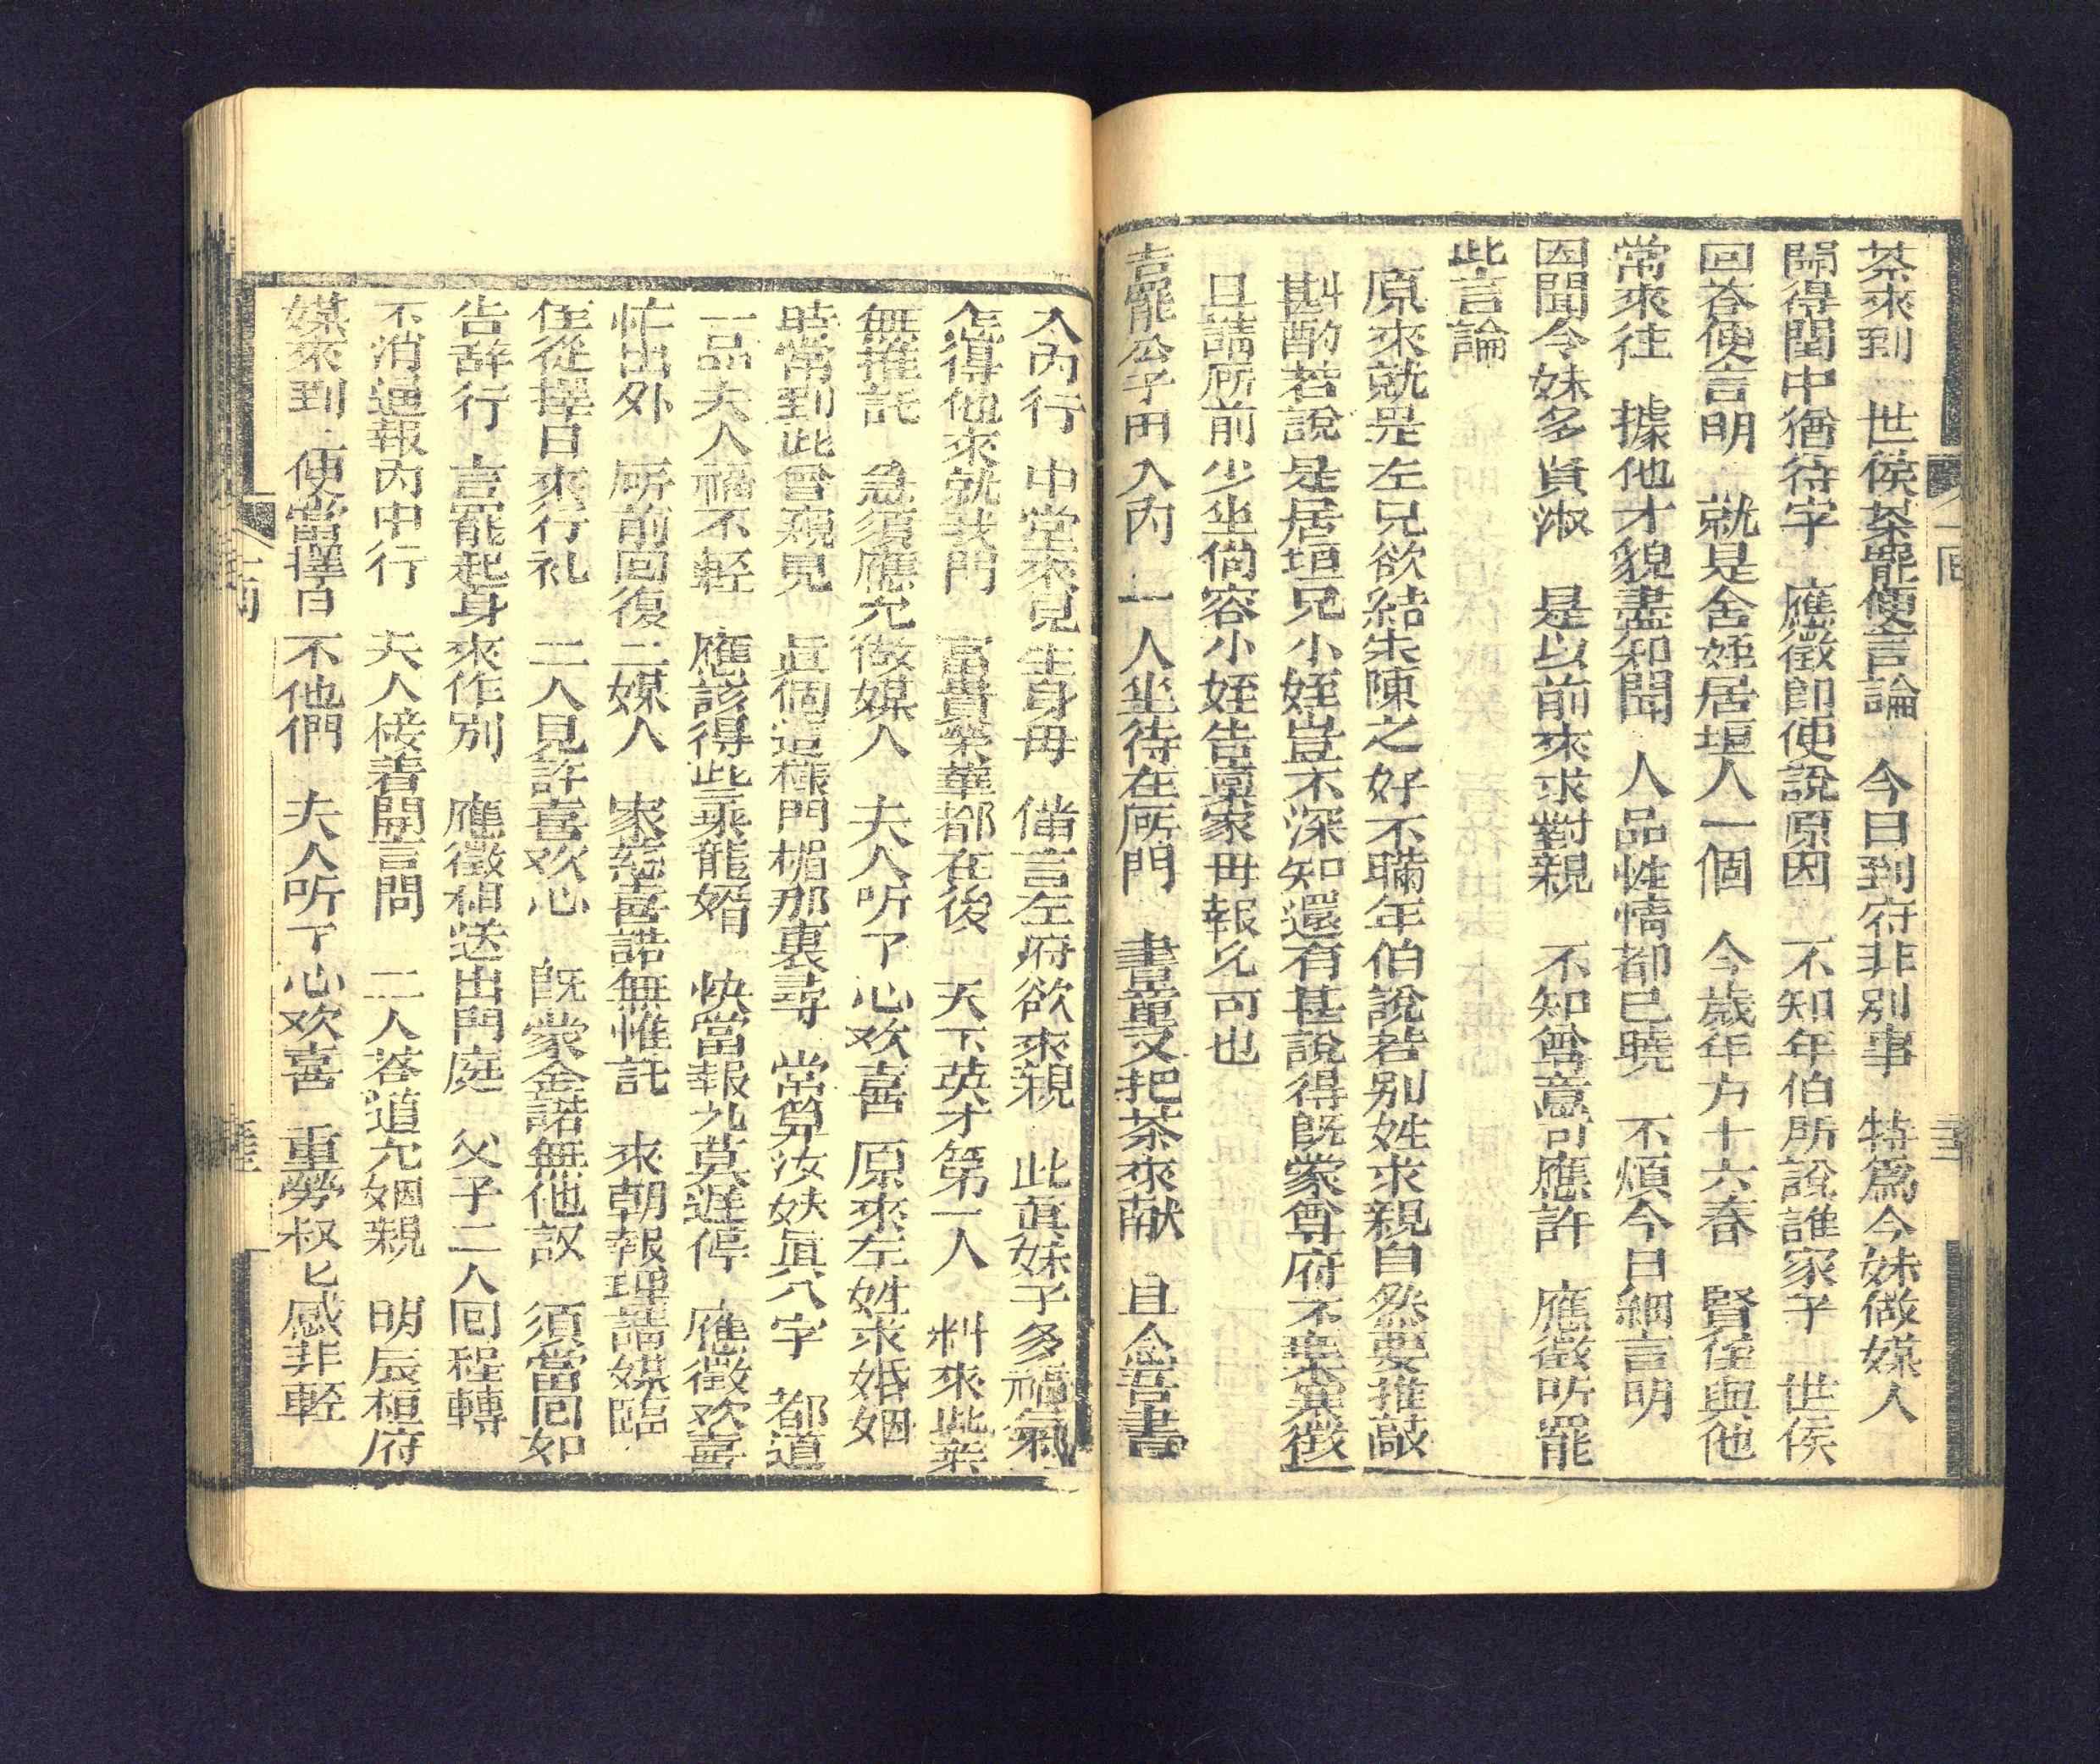 茶來到 世侯茶罷便言論 今日到府非別事 特爲令妹做媒人
聞得閨中猶待字 應徵即便說原因 不知年伯所說誰家子 世侯
回荅便言明 就是舍姪居垣人一個 今歲年方十六春 賢徃與他
常來往 據他才貌盡和聞 人品性情都已曉 不煩今日細言明
因聞令妹多賢淑 是以前來求對親 不知尊意可應許 應徵听罷
此言論
原來就是左兄欲結朱陳之好不瞞年伯說若别姓求親自然要推敲
斟酌若說是居垣兄小姪豈不深知還有甚說得既蒙尊府不棄寒微
且請所前少坐倘容小姪告稟家毋報允可也
言罷公子田入內 一人坐待在所門 書童又把茶來献 且念
入內行 中堂來見生身母 偹言左府欲來親 此眞妹子多福氣
得他來就我門 富貴榮華都在後 天下英才第一人 料來此
無推託 急須應允做媒人 夫人听了心欢喜 原來左姓求婚姻
時常到此曾窺見 眞個這樣門楣那裏尋 常算汝妹眞八字 都道
一品夫人福不輕 應該得些乘龍婿 快當報允莫遲停 應徵欢喜
忙出外 所前回復二媒人 家慈喜諾無惟託 來朝報理請媒臨
任從擇日來行礼 二人見許喜欢心 既蒙金諾無他說 須當囘如
告辞行 言罷起身來作別 應徵相送出門庭 父子二人囘程轉
不消通報內中行 夫人接着開言問 二人荅道允姻親 明辰桓府
媒來到 便當擇日 不他們 夫人听了心欢喜 重勞叔匕感非輕